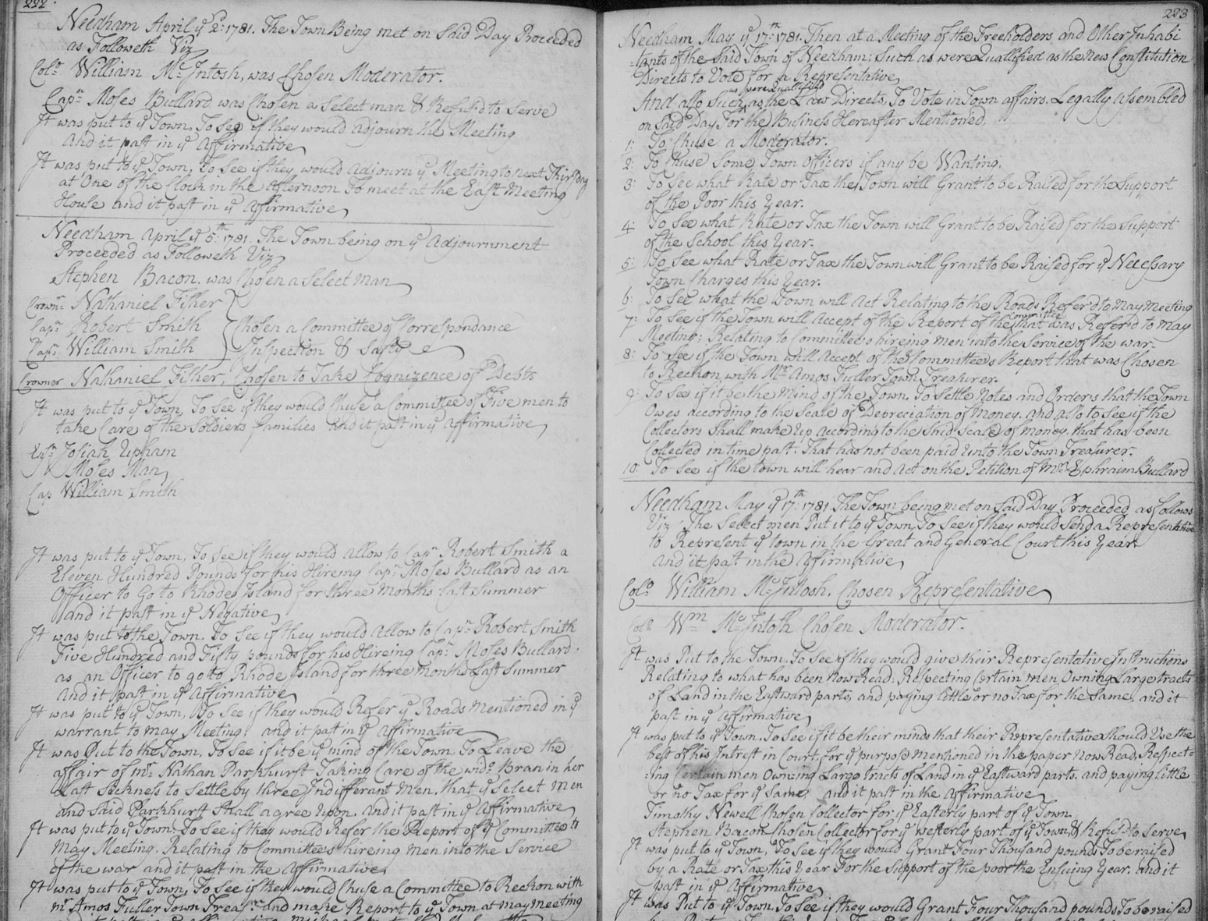 222.
Needham April ye 2: 1781. The Town Being met on Said Day Proceeded
as Followeth Viz
Colo William McIntosh, was Chosen Moderator.
Capn Moses Bullard was Chosen a Select man & Refusd to Serve
It was put to ye Town, To See if they would Adjourn the Meeting
And it past in ye Affirmative
It was put to ye Town, To See if they would Adjourn ye Meeting to next Thirsday
at One of the Clock in the afternoon To meet at the East Meeting
House and it past in ye Affirmative
Needham April ye 5th: 1781. The Town being on ye Adjournment
Proceeded as Followeth Viz
Stephen Bacon, was Chosen a Select Man
Crownr Nathaniel Fisher
Capn Robert Smith
Capn William Smith
Chosen a Committee of Correspondance
Inspection & Safty
Crowner Nathaniel Fisher, Chosen to Take Cognizence of Debts
It was put to ye Town, To See if they would Chuse a Committee of Five men to
take Care of the Soldiers families And it past in ye Affirmative
Josiah Upham
Moses Man
Cap William Smith
It was put to ye Town, To See if they would allow to Capn Robert Smith a
Eleven Hundred Pounds for his Hireing Capn Moses Bullard as an
Officer to Go to Rhode Island for three months Last Summer
and it past in ye Negative
It was put to the Town. To See if they would Allow to Capn Robert Smith
Five Hundred and Fifty pounds for his Hireing Capn Moses Bullard,
as an Officer to go to Rhode Island for three Months Last Summer
And it past in ye Affirmative
It was put to ye Town, To See if they would Refer ye Roads mentioned in ye
warrant to may Meeting and it past in ye Affirmative
It was Put to the Town. To See if it be ye mind of the Town To Leave the
affair of mr. Nathan Parkhurst Taking Care of the wido Bran in her
Last Sickness to Settle by three Indifferant Men, that ye Select Men
and Said Parkhurst Shall agree upon. And it past in ye Affirmative
It was put to ye Town, To See if they would Refer the Report of ye Committee to
May Meeting. Relating to Committees hireing men into the Service
of the war and it past in the Affirmative
It was put to ye Town, To See if they would Chuse a Committee to Reckon with
mr Amos Fuller Town Treasr and make Report to ye Town at may meeting
223
Needham May ye 17th: 1781. Then at a Meeting of the Freeholders and Other Inhabi
-tants of the Said Town of Needham; Such as were Quallified as the New Constitution
Directs to Vote for a Representative
were Quallified
And also Such as the Law Directs To Vote in Town affairs. Legally assembled
on Said Day For the Business Hereafter Mentioned
1: To Chuse a Moderator.
2: To Chuse Some Town Officers if any be Wanting.
3: To See what Rate or Tax the Town will Grant to be Raised for the Support
of the Poor this Year.
4: To See what Rate or Tax the Town will Grant to be Raised for the Support
of the School this Year.
5: To See what Rate or Tax the Town will Grant to be Raised for ye Necessary
Town Charges this Year.
6: To See what the Town will Act Relating to the Roads Referd to may meeting
7: To See if the Town will Accept of the Report of the Committee that was Referd to may
Meeting; Relating to Committees hireing men into the Service of the war.
8: To See if the Town will Accept of the Committees Report that was Chosen
to Reckon with Mr Amos Fuller Town Treasurer.
9: To See if it be the mind of the Town. To Settle Notes and Orders that the Town
Owes according to the Scale of Depreciation of money. and also to See if the
Collectors Shall make up according to the Said Scale of money, that has been
Collected in time past. That has not been paid unto the Town Treasurer.
10: To See if the town will hear and Act on the Petition of mr Ephraim Bullard
Needham May ye 17th: 1781. The Town being met on Said Day Proceeded as follows
Viz The Select men Put it to ye Town To See if they would Send a Representative
to Represent ye town in the Great and General Court this Year
And it past in the Affirmative
Colo William McIntosh. Chosen Representative
Colo Wm McIntosh Chosen Moderator.
It was Put to the Town. To See if they would give their Representative Instructions
Relating to what has been Now Read. Respecting Certain men Owning Large tracts
of Land in the Eastward parts, and paying Little or no Tax for the Same, and it
past in ye Affirmative
It was put to ye Town. To See if it be their minds that their Representative Should Use the
best of his Intrest in Court, for ye purpose Mentioned in the paper Now Read, Respect-
-ing Certain men Owning Large tracts of Land in ye Eastward parts. and paying Little
or no Tax for ye Same and it past in the Affirmative
Timothy Newell Chosen Collector for ye Easterly part of ye Town
Stephen Bacon Chosen Collector for ye westerly part of ye Town, & Refusd to Serve
It was put to ye Town, To See if they would Grant Four Thousand pounds To be raised
by a Rate or Tax this Year For the Support of the poor the Ensuing Year. and it
past in ye Affirmative
It was Put to ye Town. To See if they would Grant Four Thousand pounds To be raised